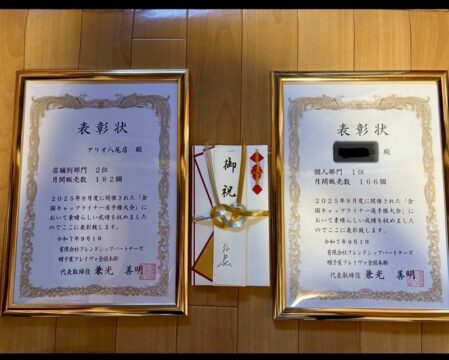 表彰状
アリオ八尾店 殿
店舗別部門 2位
月間販売数 182個
2025年8月度に開催された「全
国キャップライナー選手権大会」に
おいて素晴らしい成績を収めました
のでここに表彰致します。
令和7年9月1日
有限会社フレンドシップパートナーズ
帽子屋フレイヴァ全国本部
代表取締役 兼光 善明
御祝
表彰状
殿
個人部門 1位
月間販売数 166個
2025年8月度に開催された「全
国キャップライナー選手権大会」に
おいて素晴らしい成績を収めました
のでここに表彰致します。
令和7年9月1日
有限会社フレンドシップパートナーズ
帽子屋フレイヴァ全国本部
代表取締役 兼光 善明